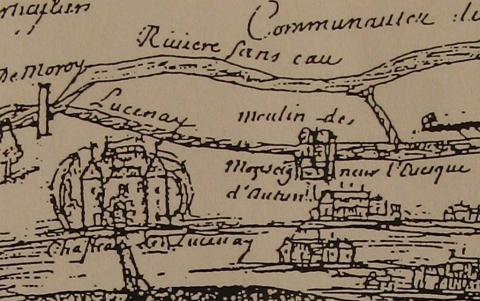 Particulier
Communautez du
Riviere sans eau
De Moroy
Lucenay
Moulin des
Monseigneur l'Evesque
d'Autun
Chasteau Lucenay